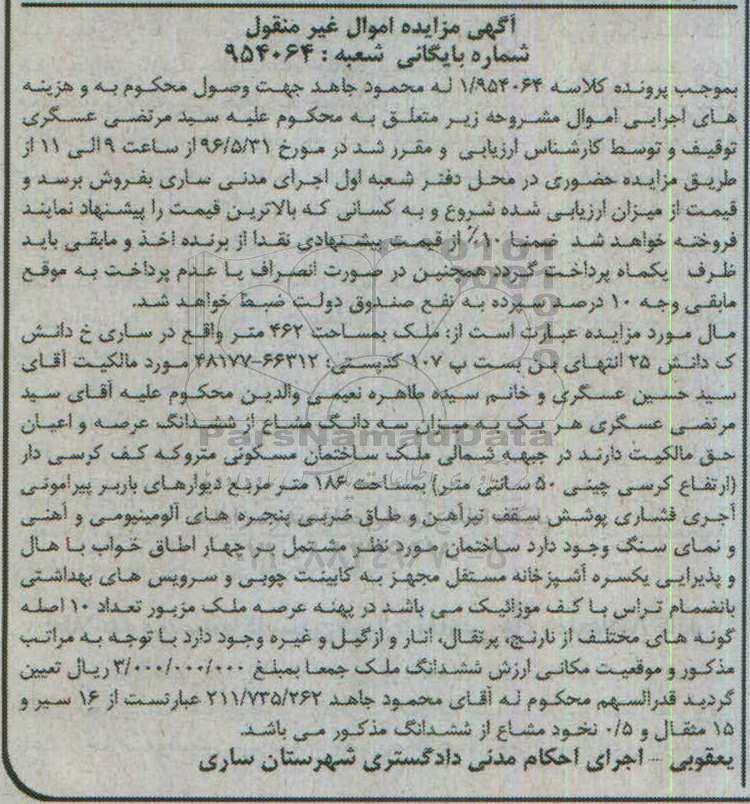 آگهی مزایده اموال غیر منقول
شماره بایگانی شعبه : ۹۵۴۰۶۴
بموجب پرونده کلاسه ۱/۹۵۴۰۶۴ له محمود جاهد جهت وصول محکوم به و هزینه
های اجرایی اموال مشروحه زیر متعلق به محکوم علیه سید مرتضی عسگری
توقیف و توسط کارشناس ارزیابی و مقرر شد در مورخ ۹۶/۵/۳۱ از ساعت ۹ الی ۱۱ از
طریق مزایده حضوری در محل دفتر شعبه اول اجرای مدنی ساری بفروش برسد و
قیمت از میزان ارزیابی شده شروع و به کسانی که بالاترین قیمت را پیشنهاد نمایند
فروخته خواهد شد ضمنا ۱۰٪ از قیمت پیشنهادی نقدا از برنده اخذ و مابقی باید
ظرف یکماه پرداخت گردد همچنین در صورت انصراف یا عدم پرداخت به موقع
مابقی وجه ۱۰ درصد سپرده به نفع صندوق دولت ضبط خواهد شد.
مال مورد مزایده عبارت است از: ملک بمساحت ۴۶۲ متر واقع در ساری خ دانش
ک دانش ۲۵ انتهای بن بست پ ۱۰۷ کدپستی: ۶۶۳۱۲-۴۸۱۷۷ مورد مالکیت آقای
سید حسین عسگری و خانم سیده طاهره نعیمی والدین محکوم علیه آقای سید
مرتضی عسگری هر یک به میزان سه دانگ مشاع از ششدانگ عرصه و اعیان
ParsNamadData
حق مالکیت دارند در جبهه شمالی ملک ساختمان مسکونی متروکه کف کرسی دار
(ارتفاع کرسی چینی ۵۰ سانتی متر) بمساحت ۱۸۶ متر مربع دیوارهای باربر پیرامونی
آجری فشاری پوشش سقف تیرآهن و طاق ضربی پنجره های آلومینیومی و آهنی
و نمای سنگ وجود دارد ساختمان مورد نظر مشتمل بر چهار اطاق خواب با هال
و پذیرایی یکسره آشپزخانه مستقل مجهز به کابینت چوبی و سرویس های بهداشتی
بانضمام تراس با کف موزائیک می باشد در پهنه عرصه ملک مزبور تعداد ۱۰ اصله
گونه های مختلف از نارنج، پرتقال، انار و ازگیل و غیره وجود دارد با توجه به مراتب
مذکور و موقعیت مکانی ارزش ششدانگ ملک جمعا بمبلغ ۳/۰۰۰/۰۰۰/۰۰۰ ریال تعیین
گردید قدرالسهم محکوم له آقای محمود جاهد ۲۱۱/۷۳۵/۲۶۲ عبارتست از ۱۶ سیر و
۱۵ مثقال و ۰/۵ نخود مشاع از ششدانگ مذکور می باشد.
یعقوبی – اجرای احکام مدنی دادگستری شهرستان ساری